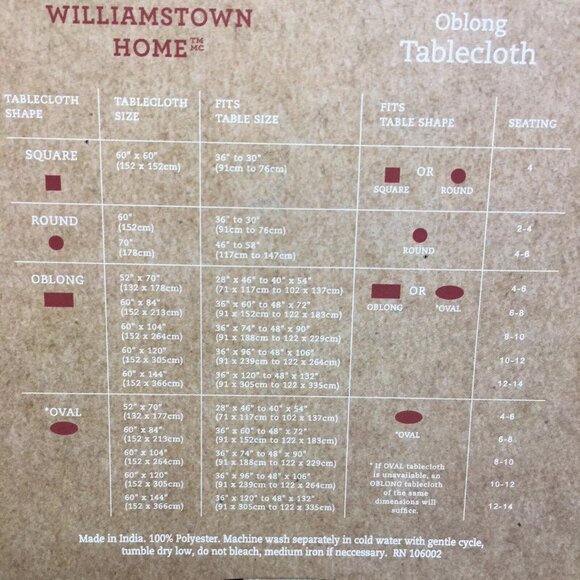 WILLIAMSTOWN
HOME™ MC
Oblong
Tablecloth
TABLECLOTH SHAPE
TABLECLOTH SIZE
FITS TABLE SIZE
FITS TABLE SHAPE
SEATING
SQUARE
60" x 60" 36" to 30"
(152 x 152cm) (91cm to 76cm)
OR
4
SQUARE ROUND
ROUND
60" 36" to 30"
(152cm) (91cm to 76cm)
2-4
70" 46" to 58"
(178cm) (117cm to 147cm)
4-6
ROUND
OBLONG
52" x 70" 28" x 46" to 40" x 54"
(132 x 178cm) (71 x 117cm to 102 x 137cm)
4-6
OR
OBLONG *OVAL
60" x 84" 36" x 60" to 48" x 72"
(152 x 213cm) (91 x 152cm to 122 x 183cm)
6-8
60" x 104" 36" x 74" to 48" x 90"
(152 x 264cm) (91 x 188cm to 122 x 229cm)
8-10
60" x 120" 36" x 96" to 48" x 106"
(152 x 305cm) (91 x 239cm to 122 x 264cm)
10-12
60" x 144" 36" x 120" to 48" x 132"
(152 x 366cm) (91 x 305cm to 122 x 335cm)
12-14
*OVAL
52" x 70" 28" x 46" to 40" x 54"
(132 x 177cm) (71 x 117cm to 102 x 137cm)
4-6
*OVAL
60" x 84" 36" x 60" to 48" x 72"
(152 x 213cm) (91 x 152cm to 122 x 183cm)
6-8
60" x 104" 36" x 74" to 48" x 90"
(152 x 264cm) (91 x 188cm to 122 x 229cm)
8-10
60" x 120" 36" x 96" to 48" x 106"
(152 x 305cm) (91 x 239cm to 122 x 264cm)
10-12
60" x 144" 36" x 120" to 48" x 132"
(152 x 366cm) (91 x 305cm to 122 x 335cm)
12-14
* If OVAL tablecloth
is unavailable, an
OBLONG tablecloth
of the same
dimensions will
suffice.
Made in India. 100% Polyester. Machine wash separately in cold water with gentle cycle,
tumble dry low, do not bleach, medium iron if neccessary. RN 106002